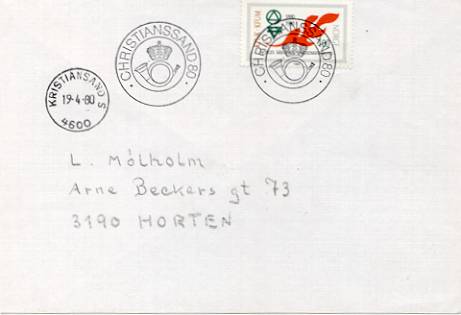 KFUM
CHRISTIANSSAND 80
CHRISTIANSSAND 80
KRISTIANSAND S
19-4-80
4600
L. Mólholm
Arne Beckers gt 73
3190 HORTEN